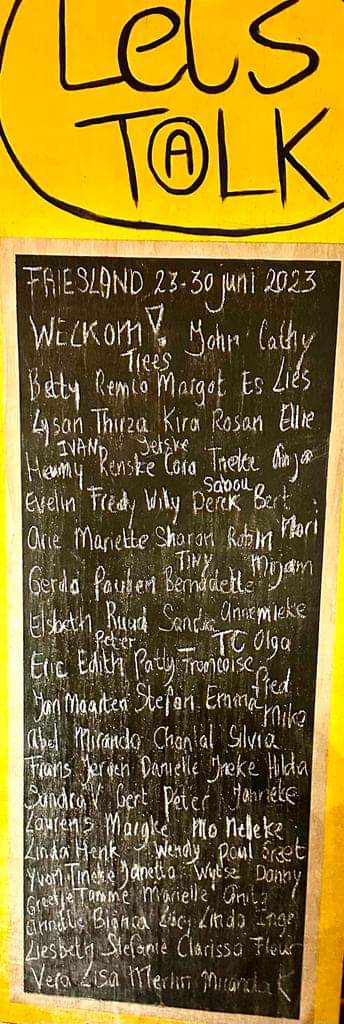 Let's
TALK
FRIESLAND 23-30 juni 2023
WELKOM! John Cathy
Trees
Betty Remco Margot Es Lies
Lysan Thirza Kira Rosan Ellie
IVANO Jetske
Hemmy Renske Cora Ineke Anja
Sabou
Evelin Fredy Willy Derk Bert
Arie Mariette Sharon Robin Mori
TINY Mirjam
Gerda Paulien Bernadette
Elsbeth Ruud Sandra Annemieke
Peter TC Olga
Eric Edith Patty Francoise
Fred
Jan Maarten Stefan Emma Mike
Abel Miranda Chantal Silvia
Frans Jeroen Danielle Ineke Hilda
Sandra V Gert Peter Janneke
Laurens Margke Mo Nelleke
Linda Henk Wendy Paul Greet
Yvon Tineke Janetta Wytse Danny
Greetje Tamme Marielle Anita
Annette Bianca Lucy Linda Inge
Liesbeth Stefanie Clarissa Fleur
Vera Lisa Merlin Miranda K